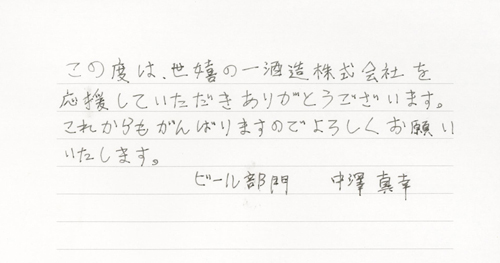 この度は、世嬉の一酒造株式会社を
応援していただきありがとうございます。
これからもがんばりますのでよろしくお願い
いたします。
ビール部門 中澤真幸